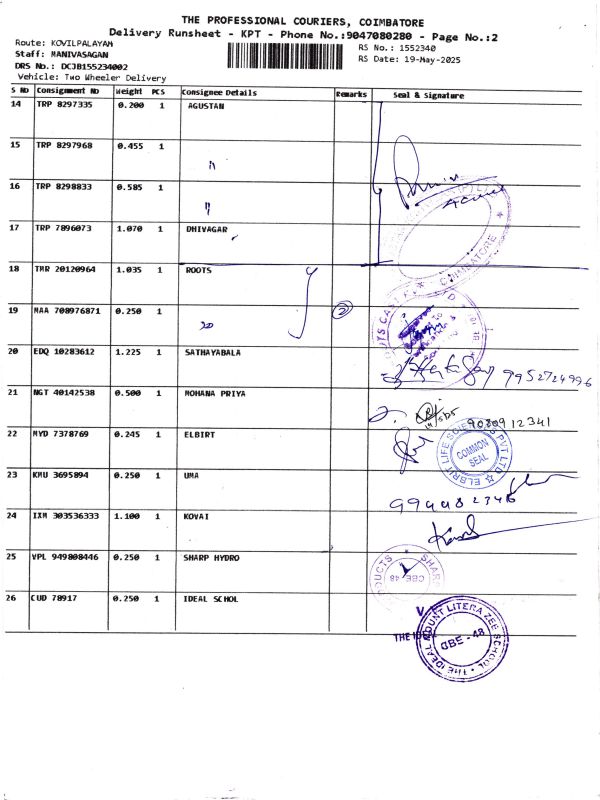 THE PROFESSIONAL COURIERS, COIMBATORE
Delivery Runsheet - KPT - Phone No.:9047080280 - Page No.:2
Route: KOVILPALAYAM
Staff: MANIVASAGAN
DRS No.: DCJB155234002
Vehicle: Two Wheeler Delivery
RS No.: 1552340
RS Date: 19-May-2025
S No Consignment No Weight PCS Consignee Details Remarks Seal & Signature
14 TRP 8297335 0.200 1 AGUSTAN
15 TRP 8297968 0.455 1 "
16 TRP 8298833 0.585 1 "
17 TRP 7896073 1.070 1 DHIVAGAR
COIMBATORE
18 TMR 20120964 1.035 1 ROOTS
19 MAA 708976871 0.250 1 2
20 EDQ 10283612 1.225 1 SATHAYABALA
9952724996
21 NGT 40142538 0.500 1 MOHANA PRIYA
9080912341
22 MYD 7378769 0.245 1 ELBIRT
ELBRIT LIFE SCIENCES PVT LTD
COMMON SEAL
23 KMU 3695894 0.250 1 UMA
994482346
24 IXM 303536333 1.100 1 KOVAI
25 VPL 949808446 0.250 1 SHARP HYDRO
SHARP
CBE 48
26 CUD 78917 0.250 1 IDEAL SCHOL
THE IDEAL MOUNT LITERA ZEE SCHOOL
CBE - 48